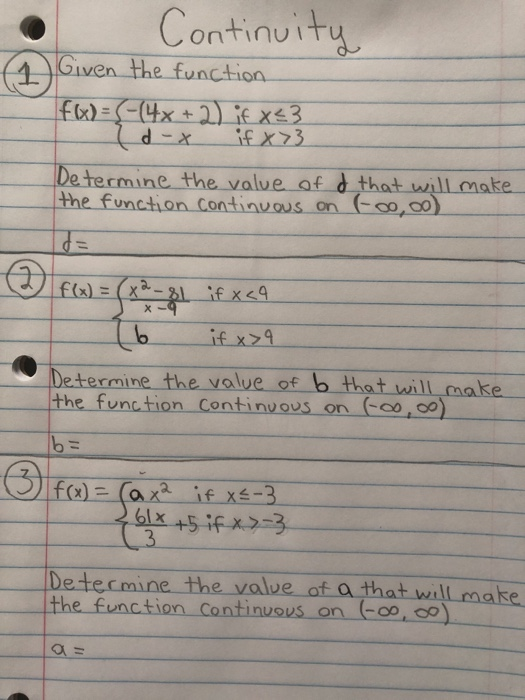 Continuity
1 Given the function
f(x) = { -(4x + 2) if x ≤ 3
d - x if x > 3
Determine the value of d that will make
the function continuous on (-∞, ∞)
d =
2 f(x) = { x² - 81 / x - 9 if x < 9
b if x > 9
Determine the value of b that will make
the function continuous on (-∞, ∞)
b =
3 f(x) = { ax² if x ≤ -3
61x / 3 + 5 if x > -3
Determine the value of a that will make
the function continuous on (-∞, ∞)
a =